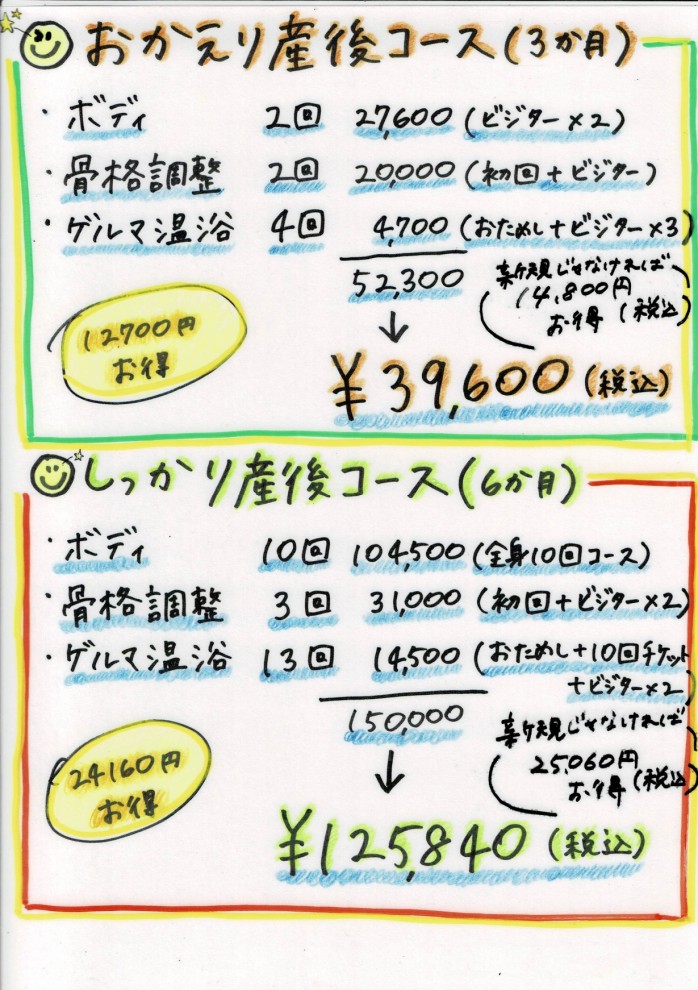 おかえり産後コース(3か月)
・ボディ 2回 27,600(ビジター×2)
・骨格調整 2回 20,000(初回+ビジター)
・ゲルマ温浴 4回 4,700(おためし+ビジター×3)
52,300
新規じゃなければ
14,800円
お得(税込)
↓
12700円
お得
¥39,600(税込)
しっかり産後コース(6か月)
・ボディ 10回 104,500(全身10回コース)
・骨格調整 3回 31,000(初回+ビジター×2)
・ゲルマ温浴 13回 14,500(おためし+10回チケット
+ビジター×2)
150,000
新規じゃなければ
25,060円
お得(税込)
↓
24160円
お得
¥125,840(税込)